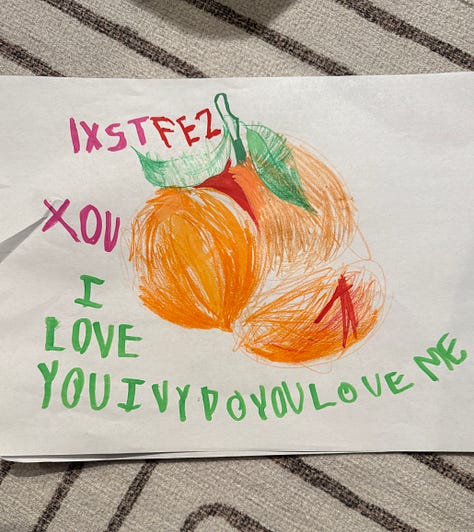 IXSTFEZ
XOU
I
LOVE
YOU IVY DO YOU LOVE ME